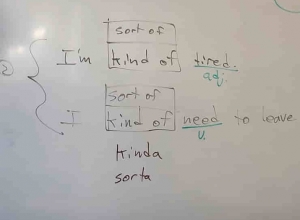 sort of
② I'm kind of tired.
adj.
sort of
I kind of need to leave
v.
kinda
sorta